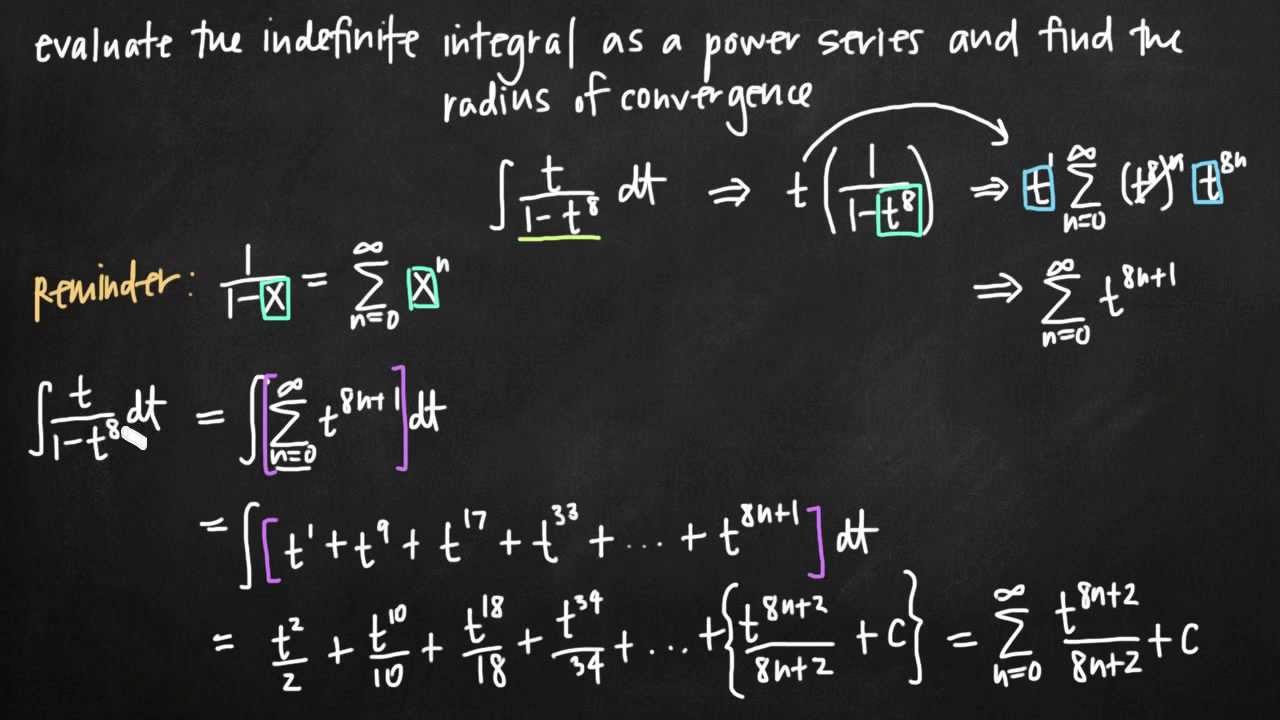 evaluate the indefinite integral as a power series and find the
radius of convergence
∫ t/(1-t⁸) dt ⇒ t(1/(1-t⁸)) ⇒ t¹ ∑_{n=0}^{∞} (t⁸)ⁿ t⁸ⁿ
⇒ ∑_{n=0}^{∞} t^{8n+1}
Reminder: 1/(1-x) = ∑_{n=0}^{∞} xⁿ
∫ t/(1-t⁸) dt = ∫[∑_{n=0}^{∞} t^{8n+1}]dt
= ∫[t¹ + t⁹ + t¹⁷ + t³³ + ... + t^{8n+1}] dt
= t²/2 + t¹⁰/10 + t¹⁸/18 + t³⁴/34 + ... + {t^{8n+2}/(8n+2) + C} = ∑_{n=0}^{∞} t^{8n+2}/(8n+2) + C